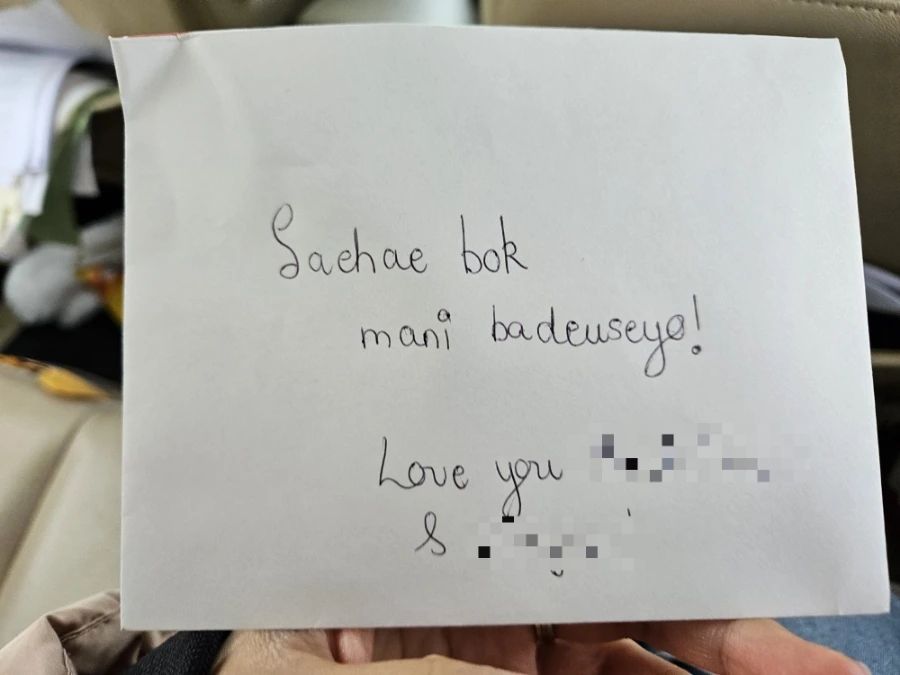 Saehae bok
mani badeuseyo!
Love you
&